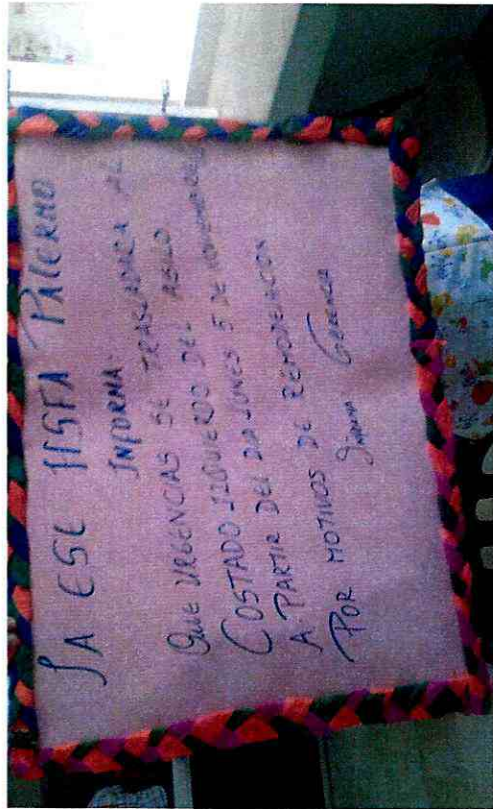 LA ESE HSFA PALERMO
INFORMA:
QUE URGENCIAS SE TRASLADARA AL
COSTADO IZQUIERDO DEL ASILO
A PARTIR DEL DIA LUNES 5 DE NOVIEMBRE
POR MOTIVOS DE REMODELACION
GERENCIA